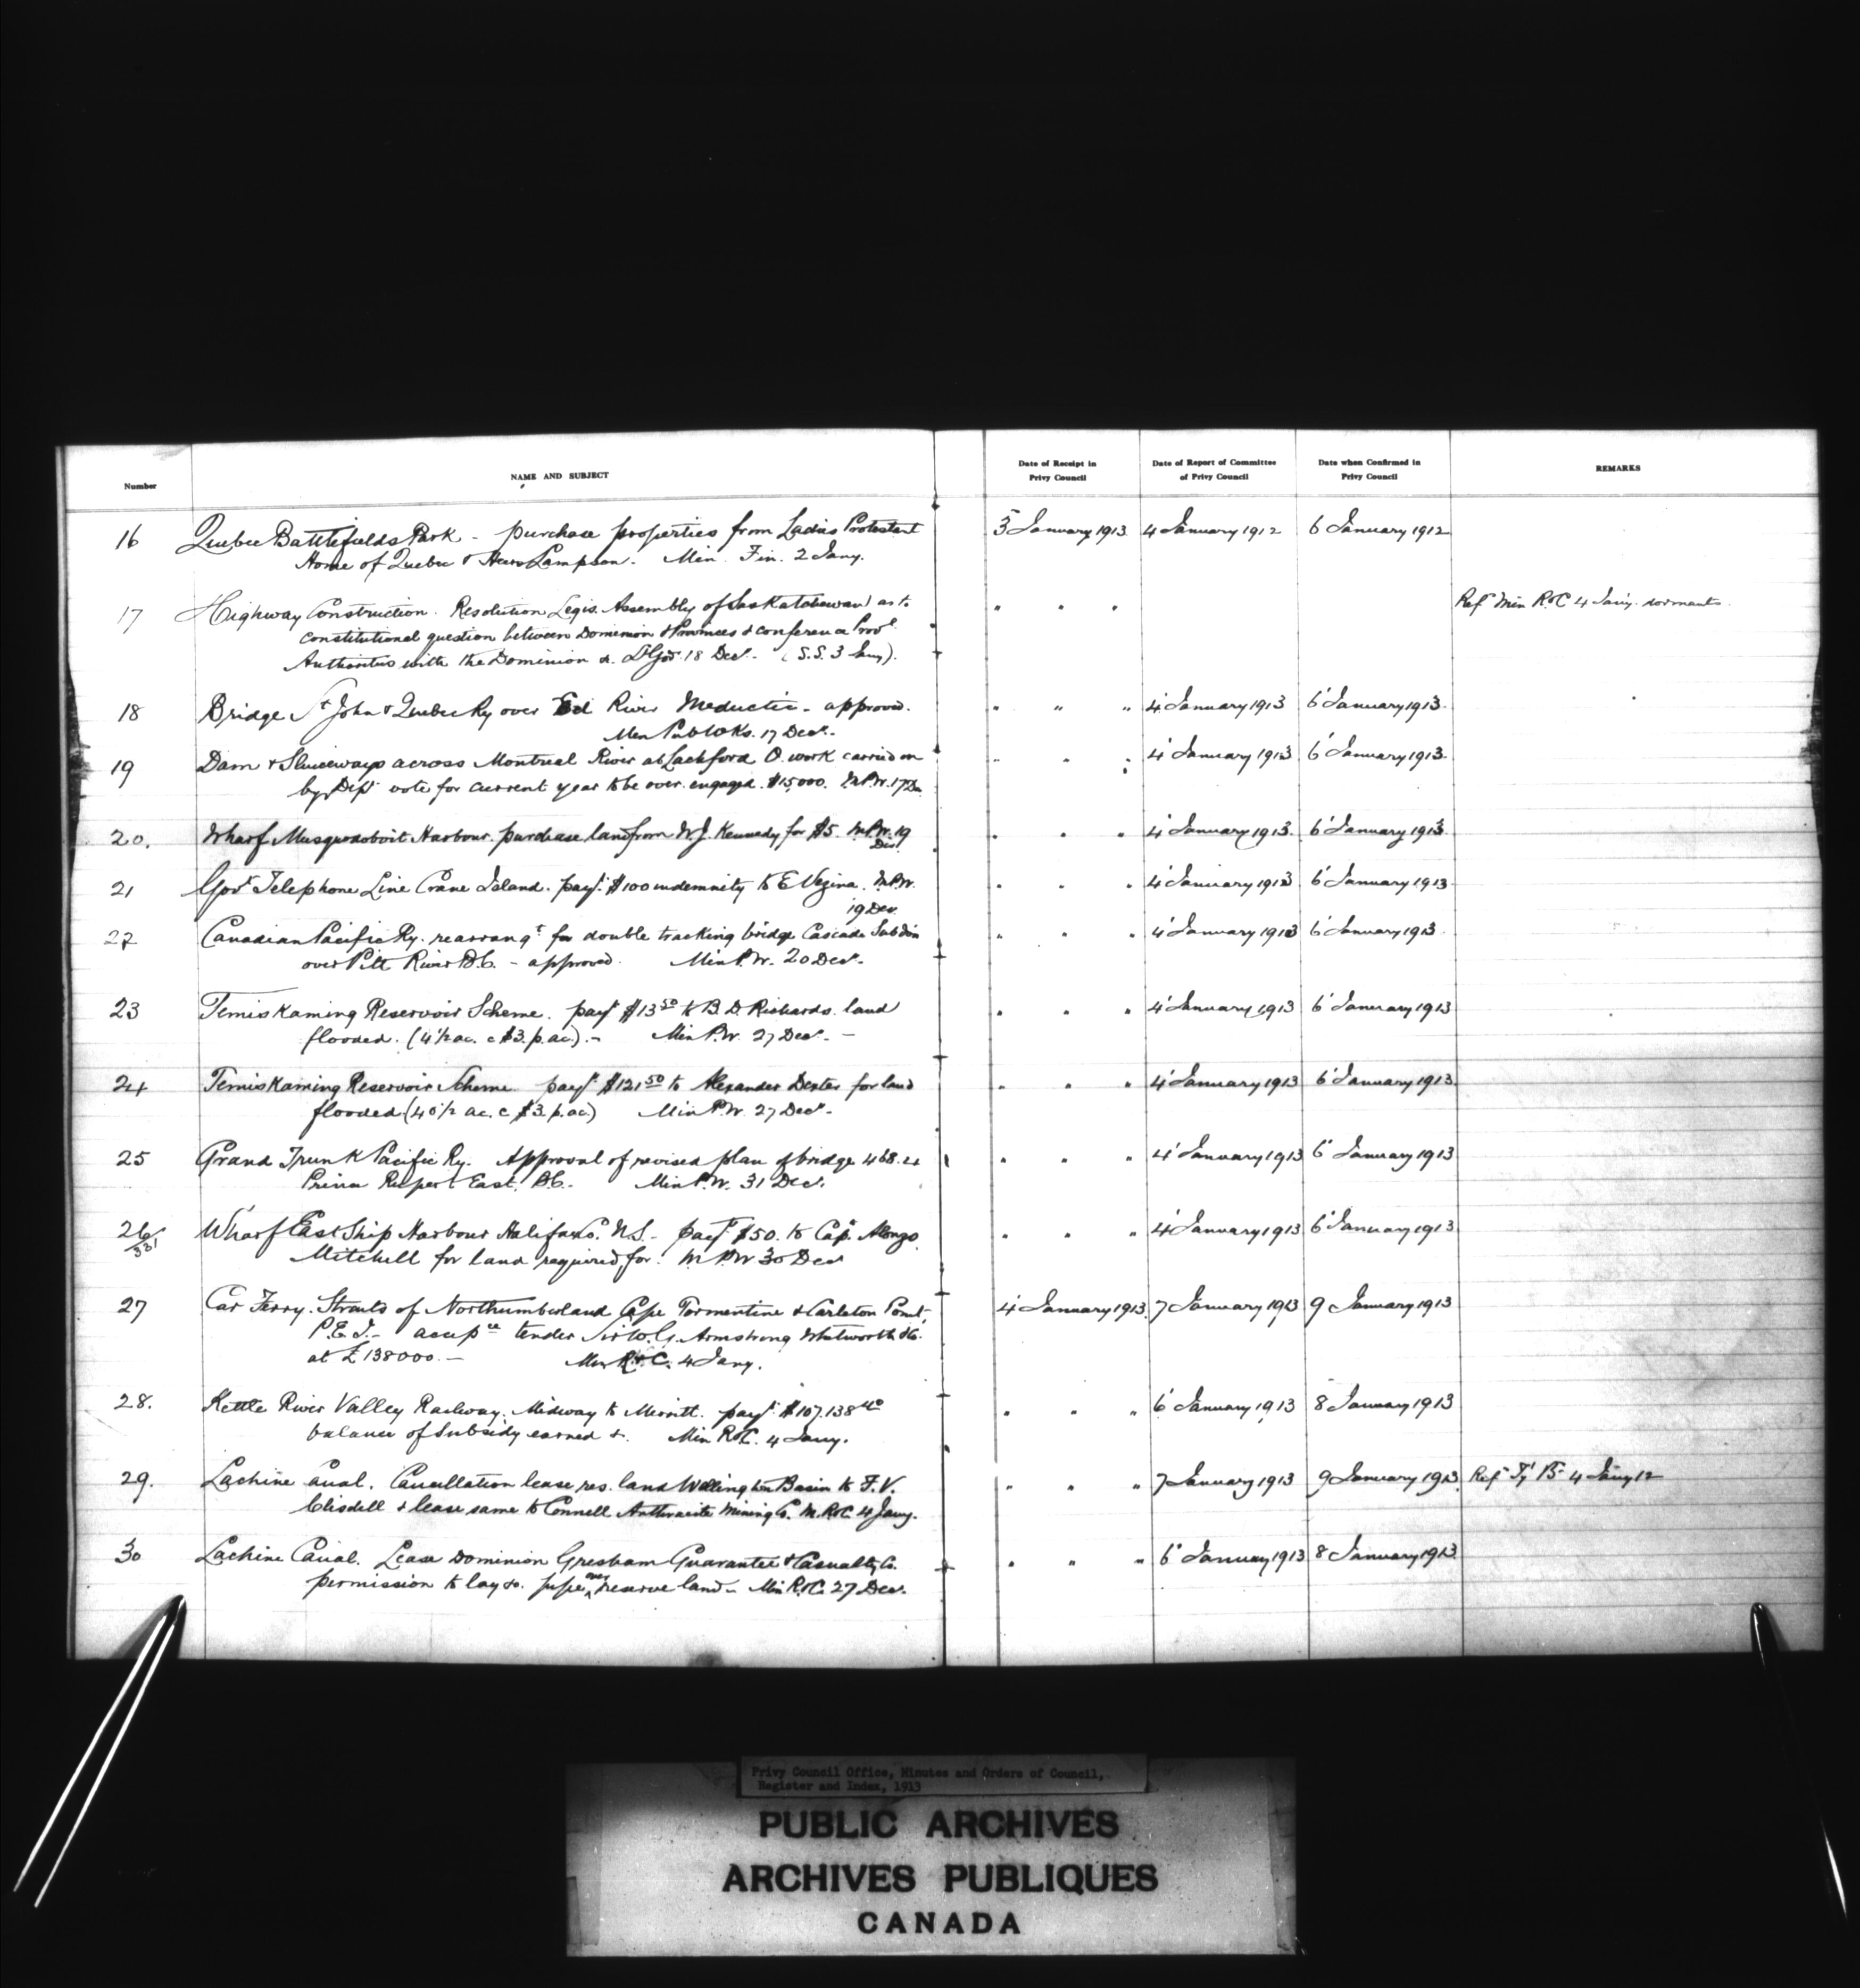 Number NAME AND SUBJECT Date of Receipt in Privy Council Date of Report of Committee of Privy Council Date when Confirmed in Privy Council REMARKS
16 Quebec Battlefields Park - purchase properties from Ladies Protestant 3 January 1913 4 January 1912 6 January 1912
Home of Quebec & Heirs Lampson. Min. Fin. 2 Jany.
17 Highway Construction. Resolution Legis. Assembly of Saskatchewan as to " " " Ref Min R&C 4 Jany. dormants
constitutional question between Dominion & Provinces & conference Provl
Authorities with the Dominion &. Lt Gov. 18 Decr. - (S.S. 3 Jany).
18 Bridge St John & Quebec Ry over River Meductic - approved. " " " 4 January 1913 6 January 1913.
Min Pub Wks. 17 Decr.-
19 Dam & Sluiceways across Montreal River at Latchford O. work carried on " " " 4 January 1913 6 January 1913.
by Dept vote for current year to be over engaged. $15,000. M.P.W. 17 De.
20. Wharf Musquodoboit Harbour. purchase land from W.J. Kennedy for $5. M.P.W. 19 " " " 4 January 1913. 6 January 1913.
Decr.
21 Govt Telephone Line Crane Island. payt. $100 indemnity to E Vezina. M.P.W. " " " 4 January 1913 6 January 1913
19 Dec.
22 Canadian Pacific Ry. rearrangt for double tracking bridge Cascade Subdivn " " " 4 January 1913 6 January 1913.
over Pitt River B.C. - approved. Min P.W. 20 Decr.
23 Temiskaming Reservoir Scheme. payt $13 50 to B.D. Richards. land " " " 4 January 1913 6 January 1913
flooded. (4 1/2 ac. c $3. p. ac.).- Min P.W. 27 Decr. -
24 Temiskaming Reservoir Scheme payt $121 50 to Alexander Dexter for land " " " 4 January 1913 6 January 1913
flooded (40 1/2 ac. c $3. p. ac.) Min P.W. 27 Decr.-
25 Grand Trunk Pacific Ry. Approval of revised plan of bridge 468.4 " " " 4 January 1913 6 January 1913
Prince Rupert East. B.C. - Min P.W. 31 Decr.
26/331 Wharf East Ship Harbour Halifax Co. N.S. - payt $50. to Capt. Alonzo " " " 4 January 1913 6 January 1913
Mitchell for land required for. M P.W 30 Decr
27 Car Ferry. Straits of Northumberland Cape Tormentine & Carleton Point, 4 January 1913. 7 January 1913 9 January 1913
P.E.I.- accepce tender Sir W.G. Armstrong Whitworth & Co.
at £138000.- Min R&C. 4 Jany.
28. Kettle River Valley Railway. Midway to Merritt. payt. $107.138 40 " " " 6 January 1913 8 January 1913
balance of subsidy earned &. Min R&C. 4 Jany.
29. Lachine Canal. Cancellation lease res. land Wellington Basin to F.V. " " " 7 January 1913 9 January 1913. Ref Ty Bd 4 Jany 12
Clisdell & lease same to Connell Anthracite Mining Co. M. R&C. 4 Jany.
30 Lachine Canal. Lease Dominion Gresham Guarantee & Casualty Co. " " " 6 January 1913 8 January 1913.
permission to lay &c. pipe over reserve land - Min R&C. 27 Dec.
Privy Council Office, Minutes and Orders of Council,
Register and Index, 1913
PUBLIC ARCHIVES
ARCHIVES PUBLIQUES
CANADA